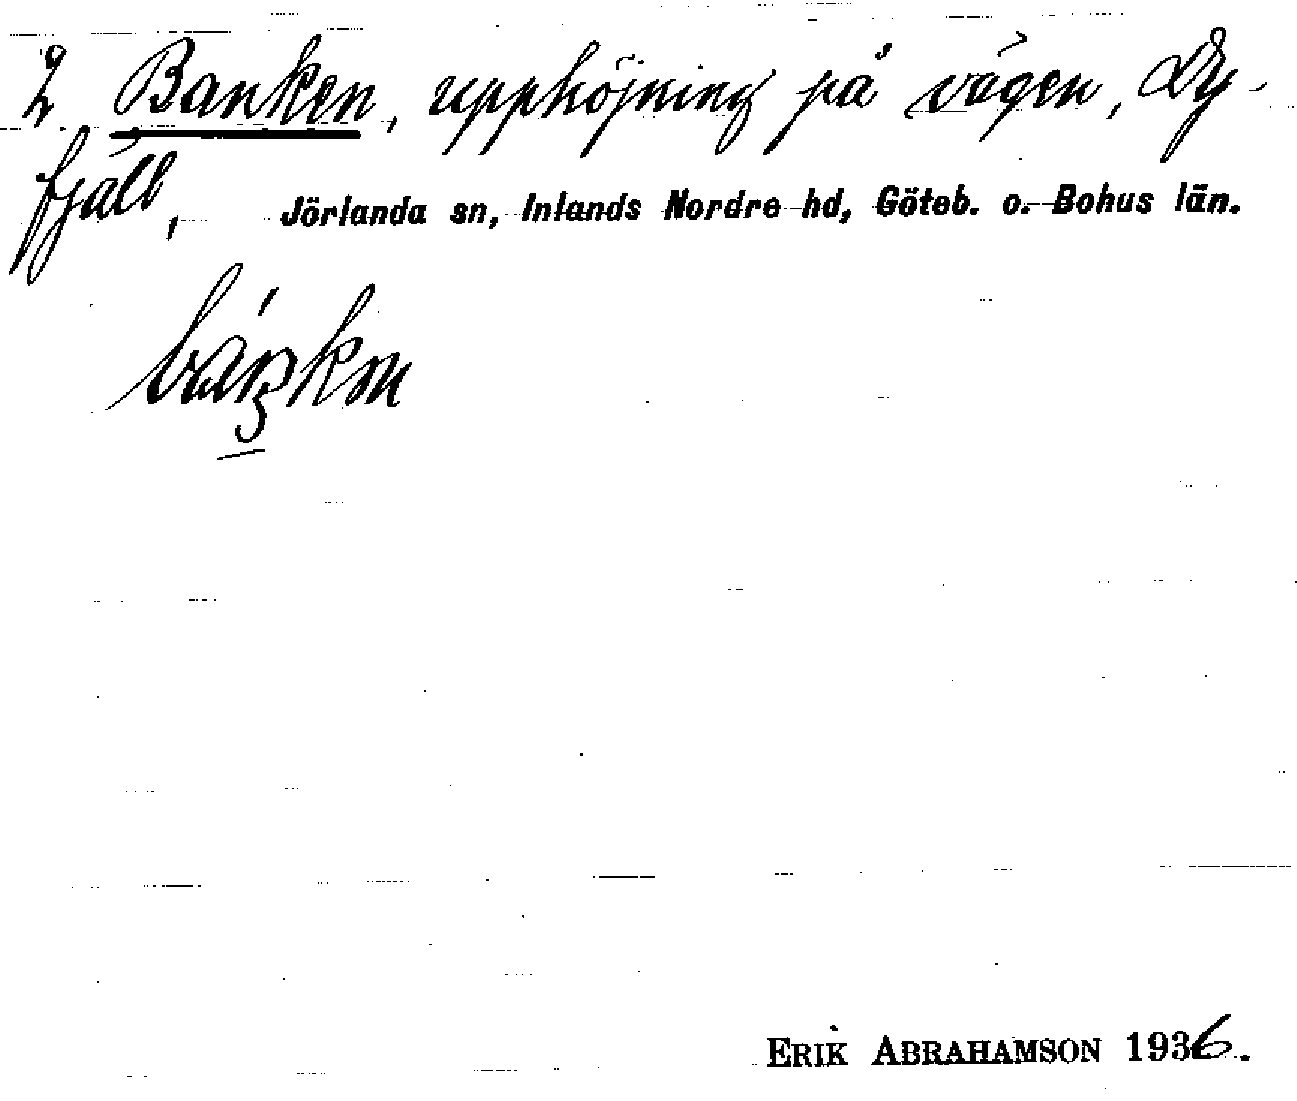 2. Banken, upphöjning på vägen, Dy-
fjäll, Jörlanda sn, Inlands Nordre hd, Göteb. o. Bohus län.
ERIK ABRAHAMSON 1936.